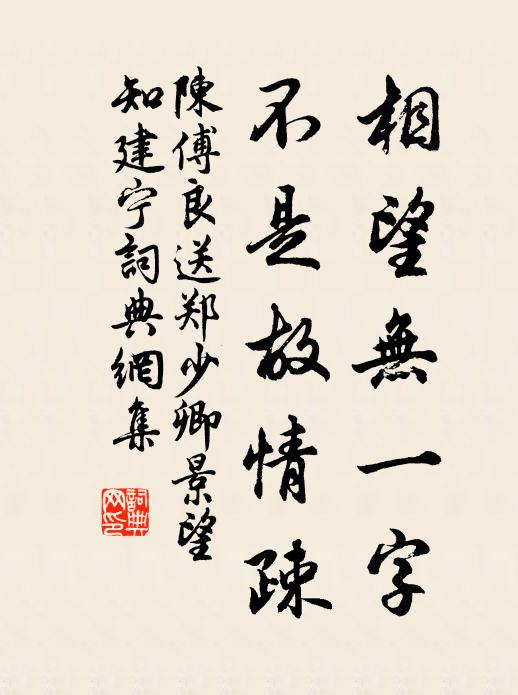 相望無一字
不是故情疎
陳傅良送郑少卿景望
知建宁詞典網集
詞典网印